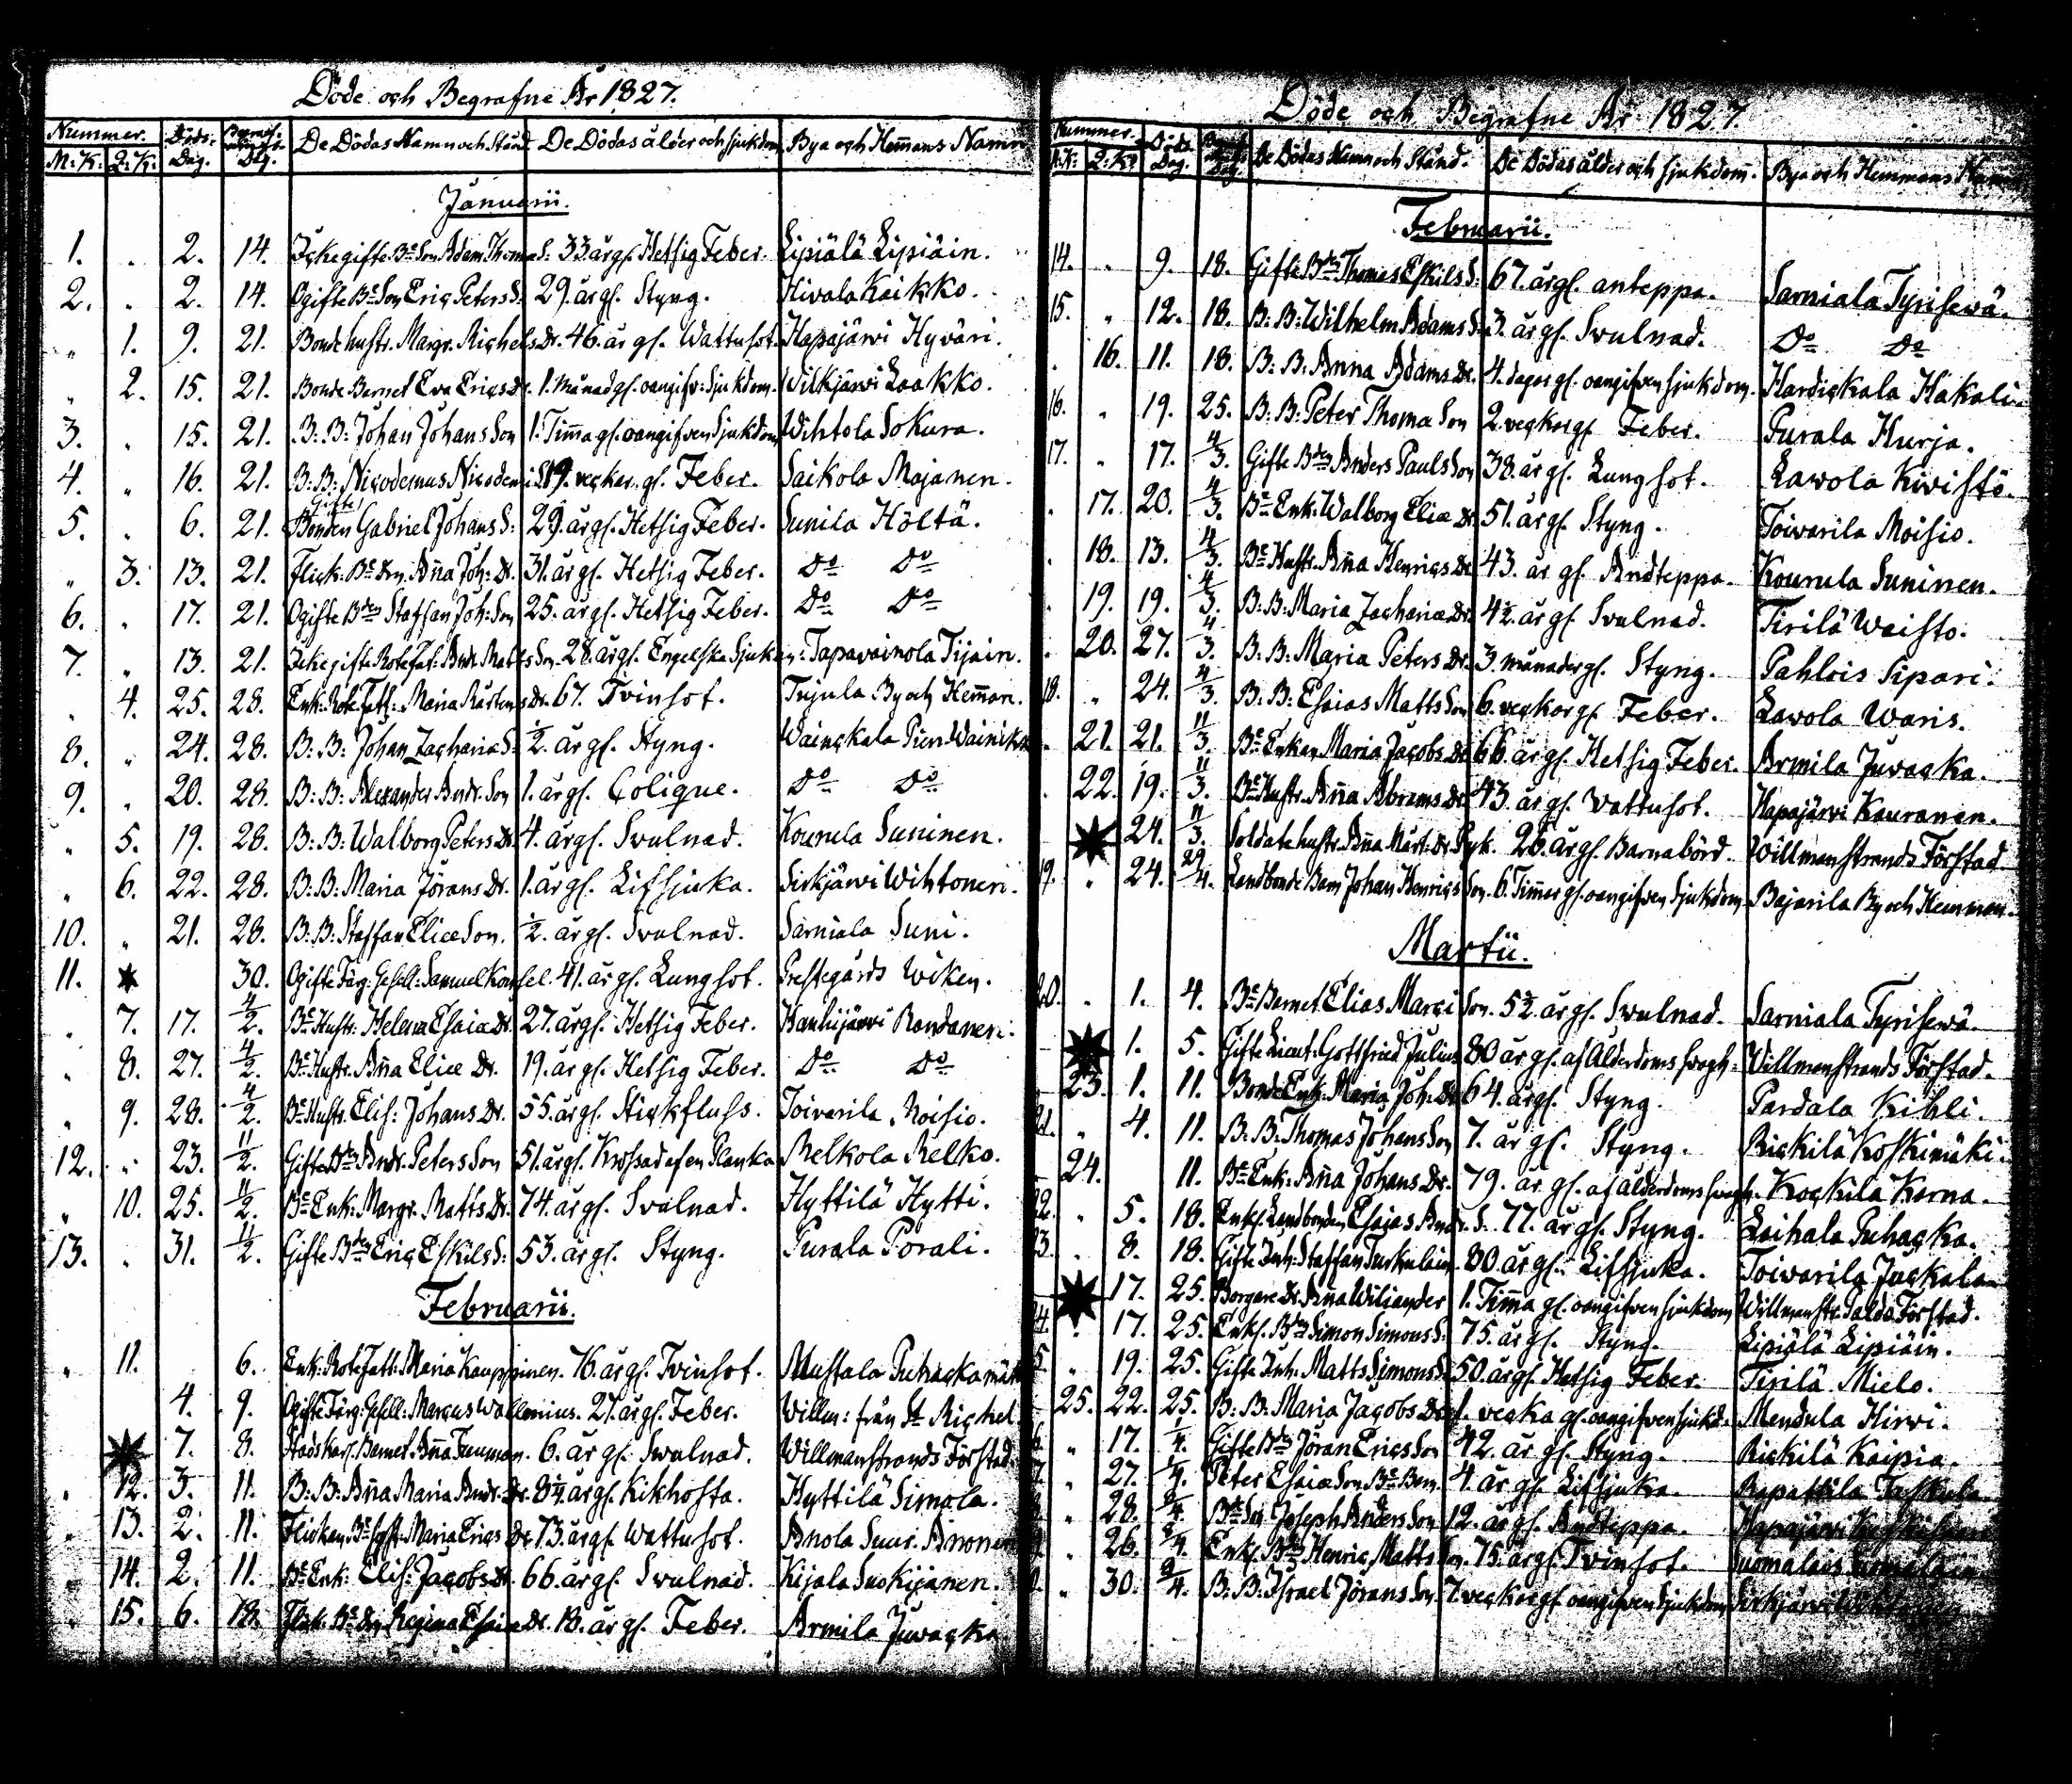 Döde och Begrafne År 1827.
Nummer. Döds- Dag. Begrafnings Dag. De Dödas Namn och Stånd De Dödas ålder och sjukdom Bya och Hemans Namn
M: K: Q: K:
Januarii.
1. . 2. 14. Ickegifte Be Son Adam Thomas S: 33 år gl. Hetsig Feber. Lipiälä Lipiäin.
2. . 2. 14. Ogifte Be Son Eric Peters S: 29. år gl. Styng. Hivala Kaikko.
" 1. 9. 21. Bonde hustr. Margr. Michels Dr. 46. år gl. Wattusot. Hapajärvi Hyväri.
" 2. 15. 21. Bonde Barnet Eva Erics Dr. 1. Månad gl. oangifv: Sjukdom. Wilkjärvi Laakko.
3. " 15. 21. B: B: Johan Johans Son 1. Tima gl. oangifven Sjukdom Wihtola Sokura.
4. " 16. 21. B: B: Nicodemus Nicodemi S. 19. veckor. gl. Feber. Saikola Majanen.
Gifte
5. " 6. 21. Bonden Gabriel Johans S: 29. år gl. Hetsig Feber. Sunila Höltä.
" 3. 13. 21. Flick. Be Dr. Aña Joh: Dr. 31. år gl. Hetsig Feber. Do Do
6. " 17. 21. Ogifte Bden Staffan Joh: Son 25. år gl. Hetsig Feber. Do Do
7. " 13. 21. Ickegifte Rotefat: Andr. Matts Son. 28. år gl. Engelska Sjukan. Tapavainola Tijäin.
" 4. 25. 28. Enk: Rote Fatt: Maria Mårtens Dr. 67. Tvinsot. Trijula By och Heman.
8. " 24. 28. B: B: Johan Zacharia S: ½. år gl. Styng. Wainckala Pien Wainikka
9. " 20. 28. B: B: Alexander Andr. Son 1. år gl. Colique. Do Do
" 5. 19. 28. B: B: Walborg Peters Dr. 4. år gl. Svulnad. Kourula Suninen.
" 6. 22. 28. B: B: Maria Jörans Dr. 1. år gl. Lifsjuka. Sirkjärvi Wihtonen.
10. " 21. 28. B: B: Staffan Eliæ Son. ½. år gl. Svulnad. Sarniala Suni.
11. 30. Ogifte Färg: Gesell: Samuel 41. år gl. Lungsot. Prestegårds Wiken.
" 7. 17. 4/2. Be Hustr: Helena Esaiæ Dr. 27. år gl. Hetsig Feber. Hanhijärvi Rondanen.
" 8. 27. 4/2. Be Hustr. Aña Eliæ Dr. 19. år gl. Hetsig Feber. Do Do
" 9. 28. 4/2. Be Hustr. Elis: Johans Dr. 55. år gl. Stickfluss. Toivarila Moisio.
12. " 23. 11/2. Gifte Bden Andr. Peters Son 51. år gl. Krossad af en Planka Melkola Melko.
" 10. 25. 11/2. Be Enk: Margr. Matts Dr. 74. år gl. Svulnad. Hyttilä Hytti.
13. " 31. 11/2. Gifte Bden Eric Eskils S: 53. år gl. Styng. Purala Porali.
Februarii.
" 11. 6. Enk: Rote Fatt: Maria Kauppinen. 76. år gl. Tvinsot. Mustala
4. 9. Ogifte Färg: Gesell: Marcus Wallenius. 27. år gl. Feber. Willm: från St. Michel
7. 8. Stads Karl. Barnet Aña 6. år gl. Swulnad. Willmanstrands Förstad.
" 12. 3. 11. B: B: Aña Maria Andr. Dr. 8¼. år gl. Kikhosta. Hyttilä Simola.
" 13. 2. 11. Flickan. Maria Erics Dr. 73. år gl. Wattusot. Anola Suur. Anonen
" 14. 2. 11. Be Enk: Elis: Jacobs Dr. 66. år gl. Svulnad. Kijala Suokijanen.
" 15. 6. 18. Flick. Be Dr. Regina Esaiæ Dr. 18. år gl. Feber. Armila Juvacka.
Döde och Begrafne År 1827.
Nummer. Döds Dag. De Dödas Namn och Stånd. De Dödas ålder och sjukdom. Bya och Hemmans Namn
M: K: Q: K:
Februarii.
14. " 9. 18. Gifte Bden Thomas Eskils S: 67. år gl. anteppa. Sarniala Tyrisevä.
15. " 12. 18. B: B: Wilhelm Adams S: 3. år gl. Svulnad. Do Do
. 16. 11. 18. B: B: Anna Adams Dr. 4. dagar gl. oangifven sjukdom. Hardickala Hakali
16. " 19. 25. B: B: Peter Thomæ Son 2. veckor gl. Feber. Purala Hurja.
17. " 17. 4/3. Gifte Bden Anders Pauls Son 38. år gl. Lungsot. Lavola Kivistö.
. 17. 20. 4/3. Be Enk: Walborg Eliæ Dr. 51. år gl. Styng. Toivarila Moisio.
. 18. 13. 4/3. Be Hustr. Aña Henrics Dr. 43. år gl. Andteppa. Kourula Suninen.
. 19. 19. 4/3. B: B: Maria Zachariæ Dr. 4½. år gl. Svulnad. Tirilä Waisto.
. 20. 27. 4/3. B: B: Maria Peters Dr. 3. månader gl. Styng. Pahlois Sipari.
18. " 24. 4/3. B: B: Esaias Matts Son 6. veckor gl. Feber. Lavola Waris.
. 21. 21. 11/3. Be Enkan Maria Jacobs Dr. 66. år gl. Hetsig Feber. Armila Juvacka.
. 22. 19. 11/3. Be Hustr. Aña Abrams Dr. 43. år gl. Vattusot. Hapajärvi Kauranen.
24. 11/3. Soldate hustr. Aña Mårt: Dr. 26. år gl. Barnabörd. Willmanstrands Förstad
19. " 24. 29/4. Landbonde Barn Johan Henrics Son. 6. Timar gl. oangifven Sjukdom Bajarila By och Hemman.
Martii.
20. . 1. 4. Be Barnet Elias Marci Son. 5½. år gl. Swulnad. Sarniala Tyrisevä.
1. 5. Gifte Lieut: Gottfried Julius 80 år gl. af Alderdoms svagh: Willmanstrands Förstad.
23. 1. 11. Bonde Enk: Maria Joh: Dr. 64. år gl. Styng. Pardala Kihli.
21. " 4. 11. B: B: Thomas Johans Son 7. år gl. Styng. Rickilä Koskimäki.
24. 11. Be Enk: Aña Johans Dr. 79. år gl. af ålderdoms svagh. Kockila Karna.
22. " 5. 18. Enkl. Landbonden Esaias Andr. S. 77. år gl. Styng. Laihala Puhacka.
23. . 8. 18. Gifte Inh. Staffan 80. år gl. Lifsjuka. Toivarila Juckala
17. 25. Borgare Dr. Aña Wiliander 1. Tima gl. oangifven sjukdom Willmanstr. Förstad.
24. . 17. 25. Enkl. Bden Simon Simons S: 75. år gl. Styng. Lipiälä Lipiäin.
5. " 19. 25. Gifte Inh. Matts Simons S: 50. år gl. Hetsig Feber. Tirilä Mielo.
25. 22. 25. B: B: Maria Jacobs Dr. 1. vecka gl. oangifven sjukd. Mendula Hirvi.
" 17. 1/4. Gifte Bden Jöran Erics Son 42. år gl. Styng. Rickilä Kaipia.
" 27. 1/4. Peter Esaiæ Son Be Barn. 4. år gl. Lifsjuka. Rapattila
" 28. 2/4. Be Son Joseph Anders Son 12. år gl. Andteppa. Hapajärvi
" 26. 2/4. Enkl. Bden Henric Matts Son. 75. år gl. Tvinsot. Suomalais
" 30. 2/4. B: B: Israel Jörans Son. 7. veckor gl. oangifven Sjukdom Sirkjärvi